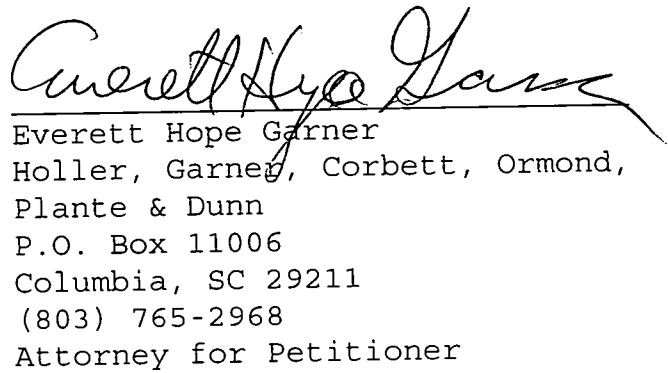 Everett Hope Garner
Everett Hope Garner
Holler, Garner, Corbett, Ormond,
Plante & Dunn
P.O. Box 11006
Columbia, SC 29211
(803) 765-2968
Attorney for Petitioner